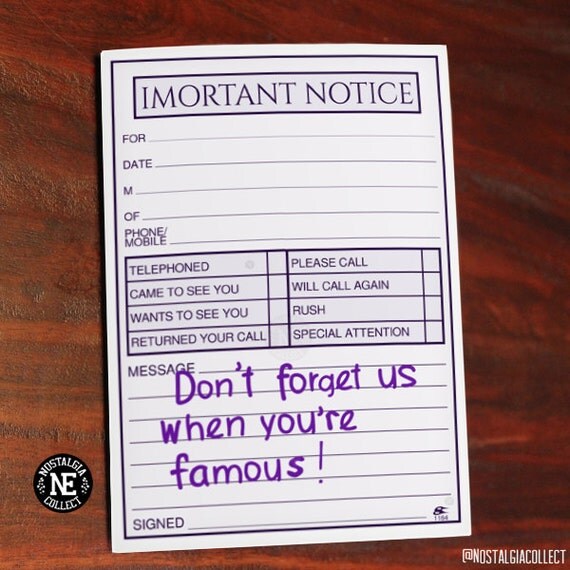 IMORTANT NOTICE
FOR
DATE
M
OF
PHONE/
MOBILE
TELEPHONED PLEASE CALL
CAME TO SEE YOU WILL CALL AGAIN
WANTS TO SEE YOU RUSH
RETURNED YOUR CALL SPECIAL ATTENTION
MESSAGE
Don't forget us
when you're
famous!
NOSTALGIA
NE
COLLECT
SIGNED
1184
@NOSTALGIACOLLECT